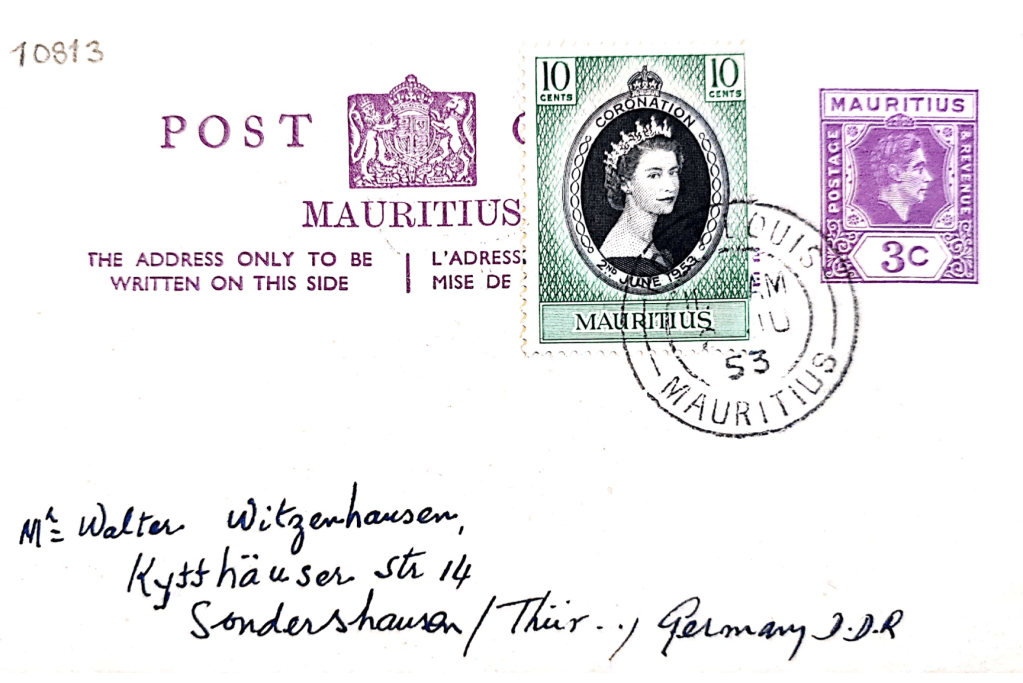 10813
POST
MAURITIUS
THE ADDRESS ONLY TO BE
WRITTEN ON THIS SIDE
L'ADRESS
MISE DE
10 CENTS
10 CENTS
CORONATION
2ND JUNE 1953
MAURITIUS
MAURITIUS
POSTAGE
& REVENUE
3C
OUIS
AM
53
MAURITIUS
Mr Walter Witzenhausen,
Kyffhäuser Str 14
Sondershausen / Thür.., Germany D.D.R